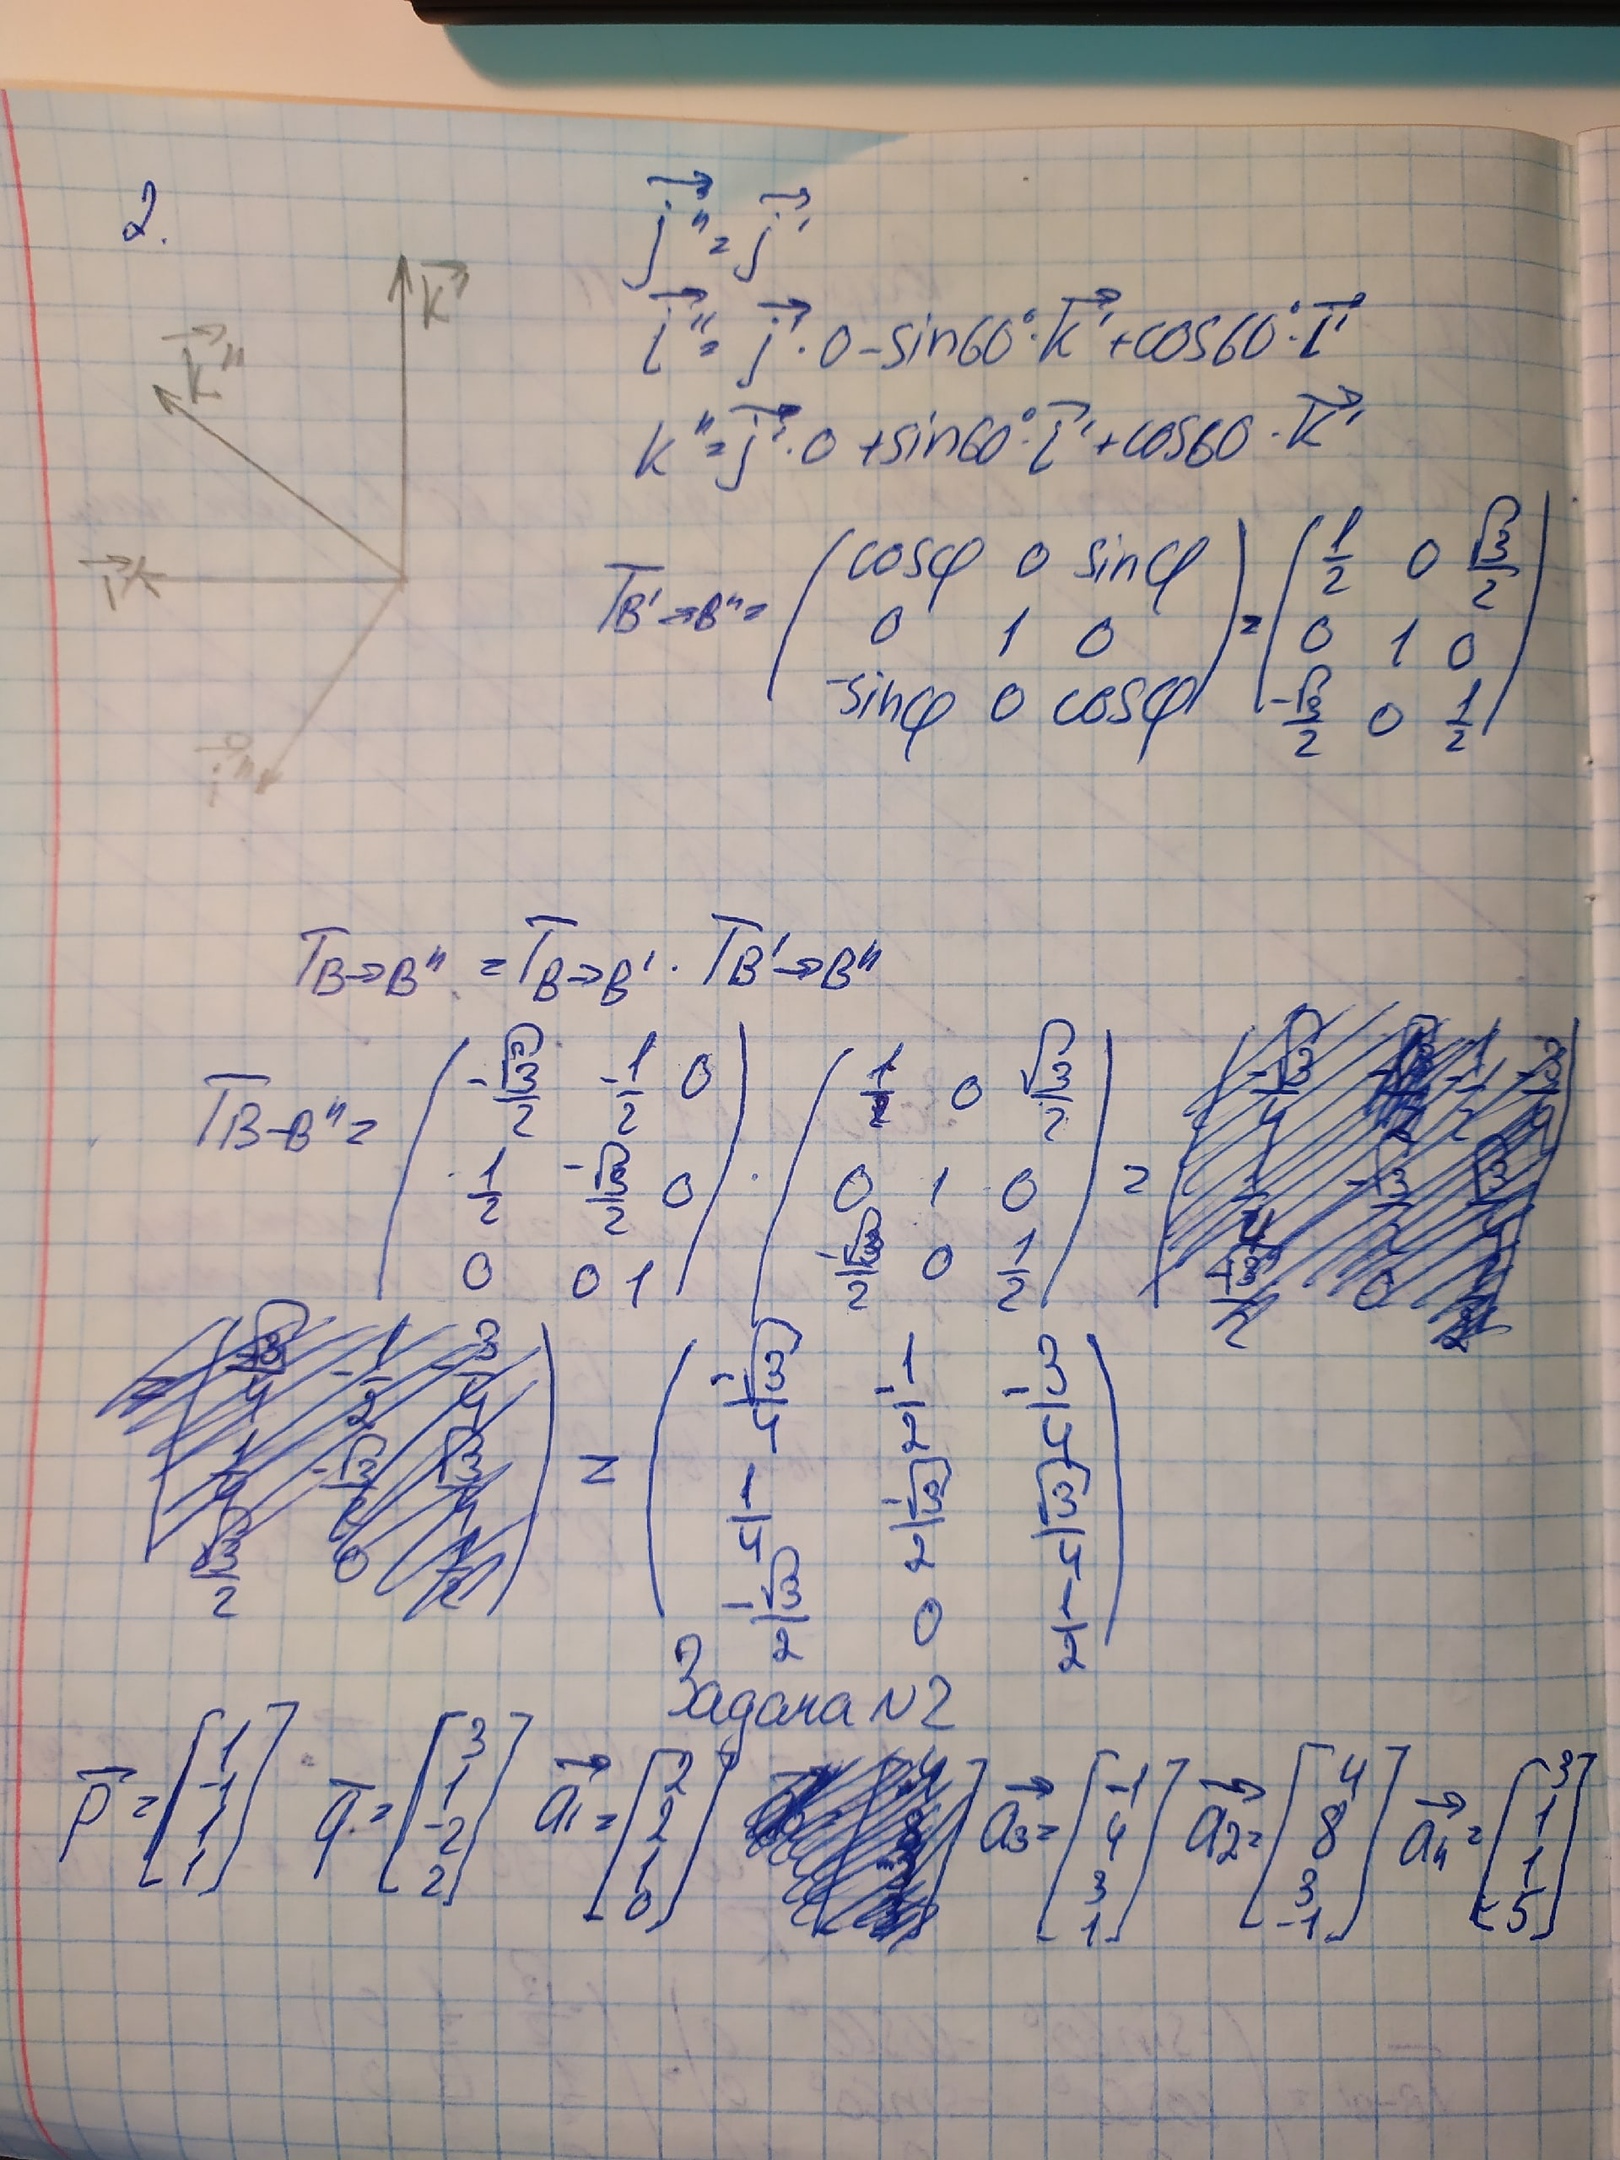 2.
k'
k''
i'
i''
j'' = j'
i'' = j'·0 - sin60°·k' + cos60°·i'
k'' = j'·0 + sin60°·i' + cos60·k'
T B'→B'' = ( cosφ 0 sinφ ) = ( 1/2 0 √3/2 )
( 0 1 0 ) ( 0 1 0 )
( -sinφ 0 cosφ ) ( -√3/2 0 1/2 )
T B→B'' = T B→B' · T B'→B''
T B→B'' = ( -√3/2 -1/2 0 ) · ( 1/2 0 √3/2 ) =
( 1/2 -√3/2 0 ) ( 0 1 0 )
( 0 0 1 ) ( -√3/2 0 1/2 )
= ( -√3/4 -1/2 -3/4 )
( 1/4 -√3/2 √3/4 )
( -√3/2 0 1/2 )
Задача N2
p = [1 -1 1 1] q = [3 1 -2 2] a1 = [2 2 1 0] a3 = [-1 4 3 1] a2 = [4 8 3 -1] a4 = [3 1 1 -5]